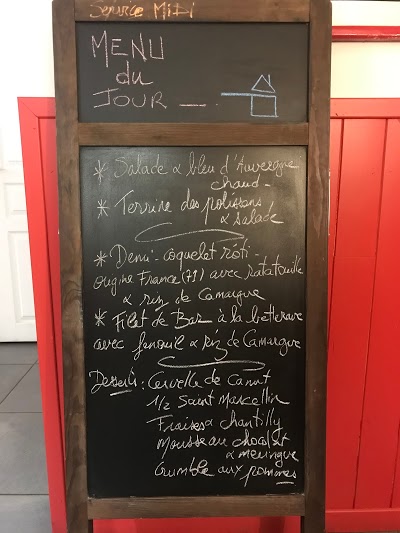 Service Midi
MENU
du
JOUR
* Salade & bleu d'Auvergne
chaud
* Terrine des polissons
& salade
* Demi-coquelet rôti
origine France (71) avec ratatouille
& riz de Camargue
* Filet de Bar à la betterave
avec fenouil & Riz de Camargue
Desserts : Cervelle de Canut
1/2 Saint Marcellin
Fraises & chantilly
Mousse au chocolat
& meringue
Crumble aux pommes